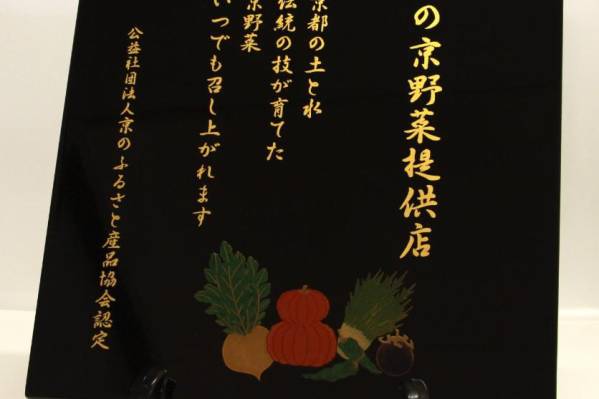 の京野菜提供店
京都の土と水
伝統の技が育てた
京野菜
いつでも召し上がれます
公益社団法人京のふるさと産品協会認定